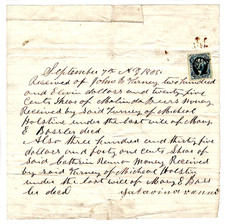 September 7th AD 1865
Received of John E Turney two hundred
and Elevin dollars and twenty five
Cents Shear of Malinda Deirs money
Received by Said Turney of Micheal
Holstine under the last will of Mary
E Bossler died
Also three hundred and thirty five
dollars and forty one cents Shear of
Said Cathrin money Received
by Said Turney of Micheal Holstin
under the last will of Mary E Boss
ler died